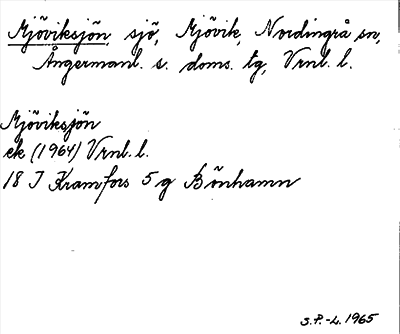 Mjöviksjön, sjö, Mjövik, Nordingrå sn,
Ångermanl. s. doms. tg, Vrnl. l.
Mjöviksjön
ek (1964) Vrnl. l.
18 I Kramfors 5 g Bönhamn
S.P.-L. 1965